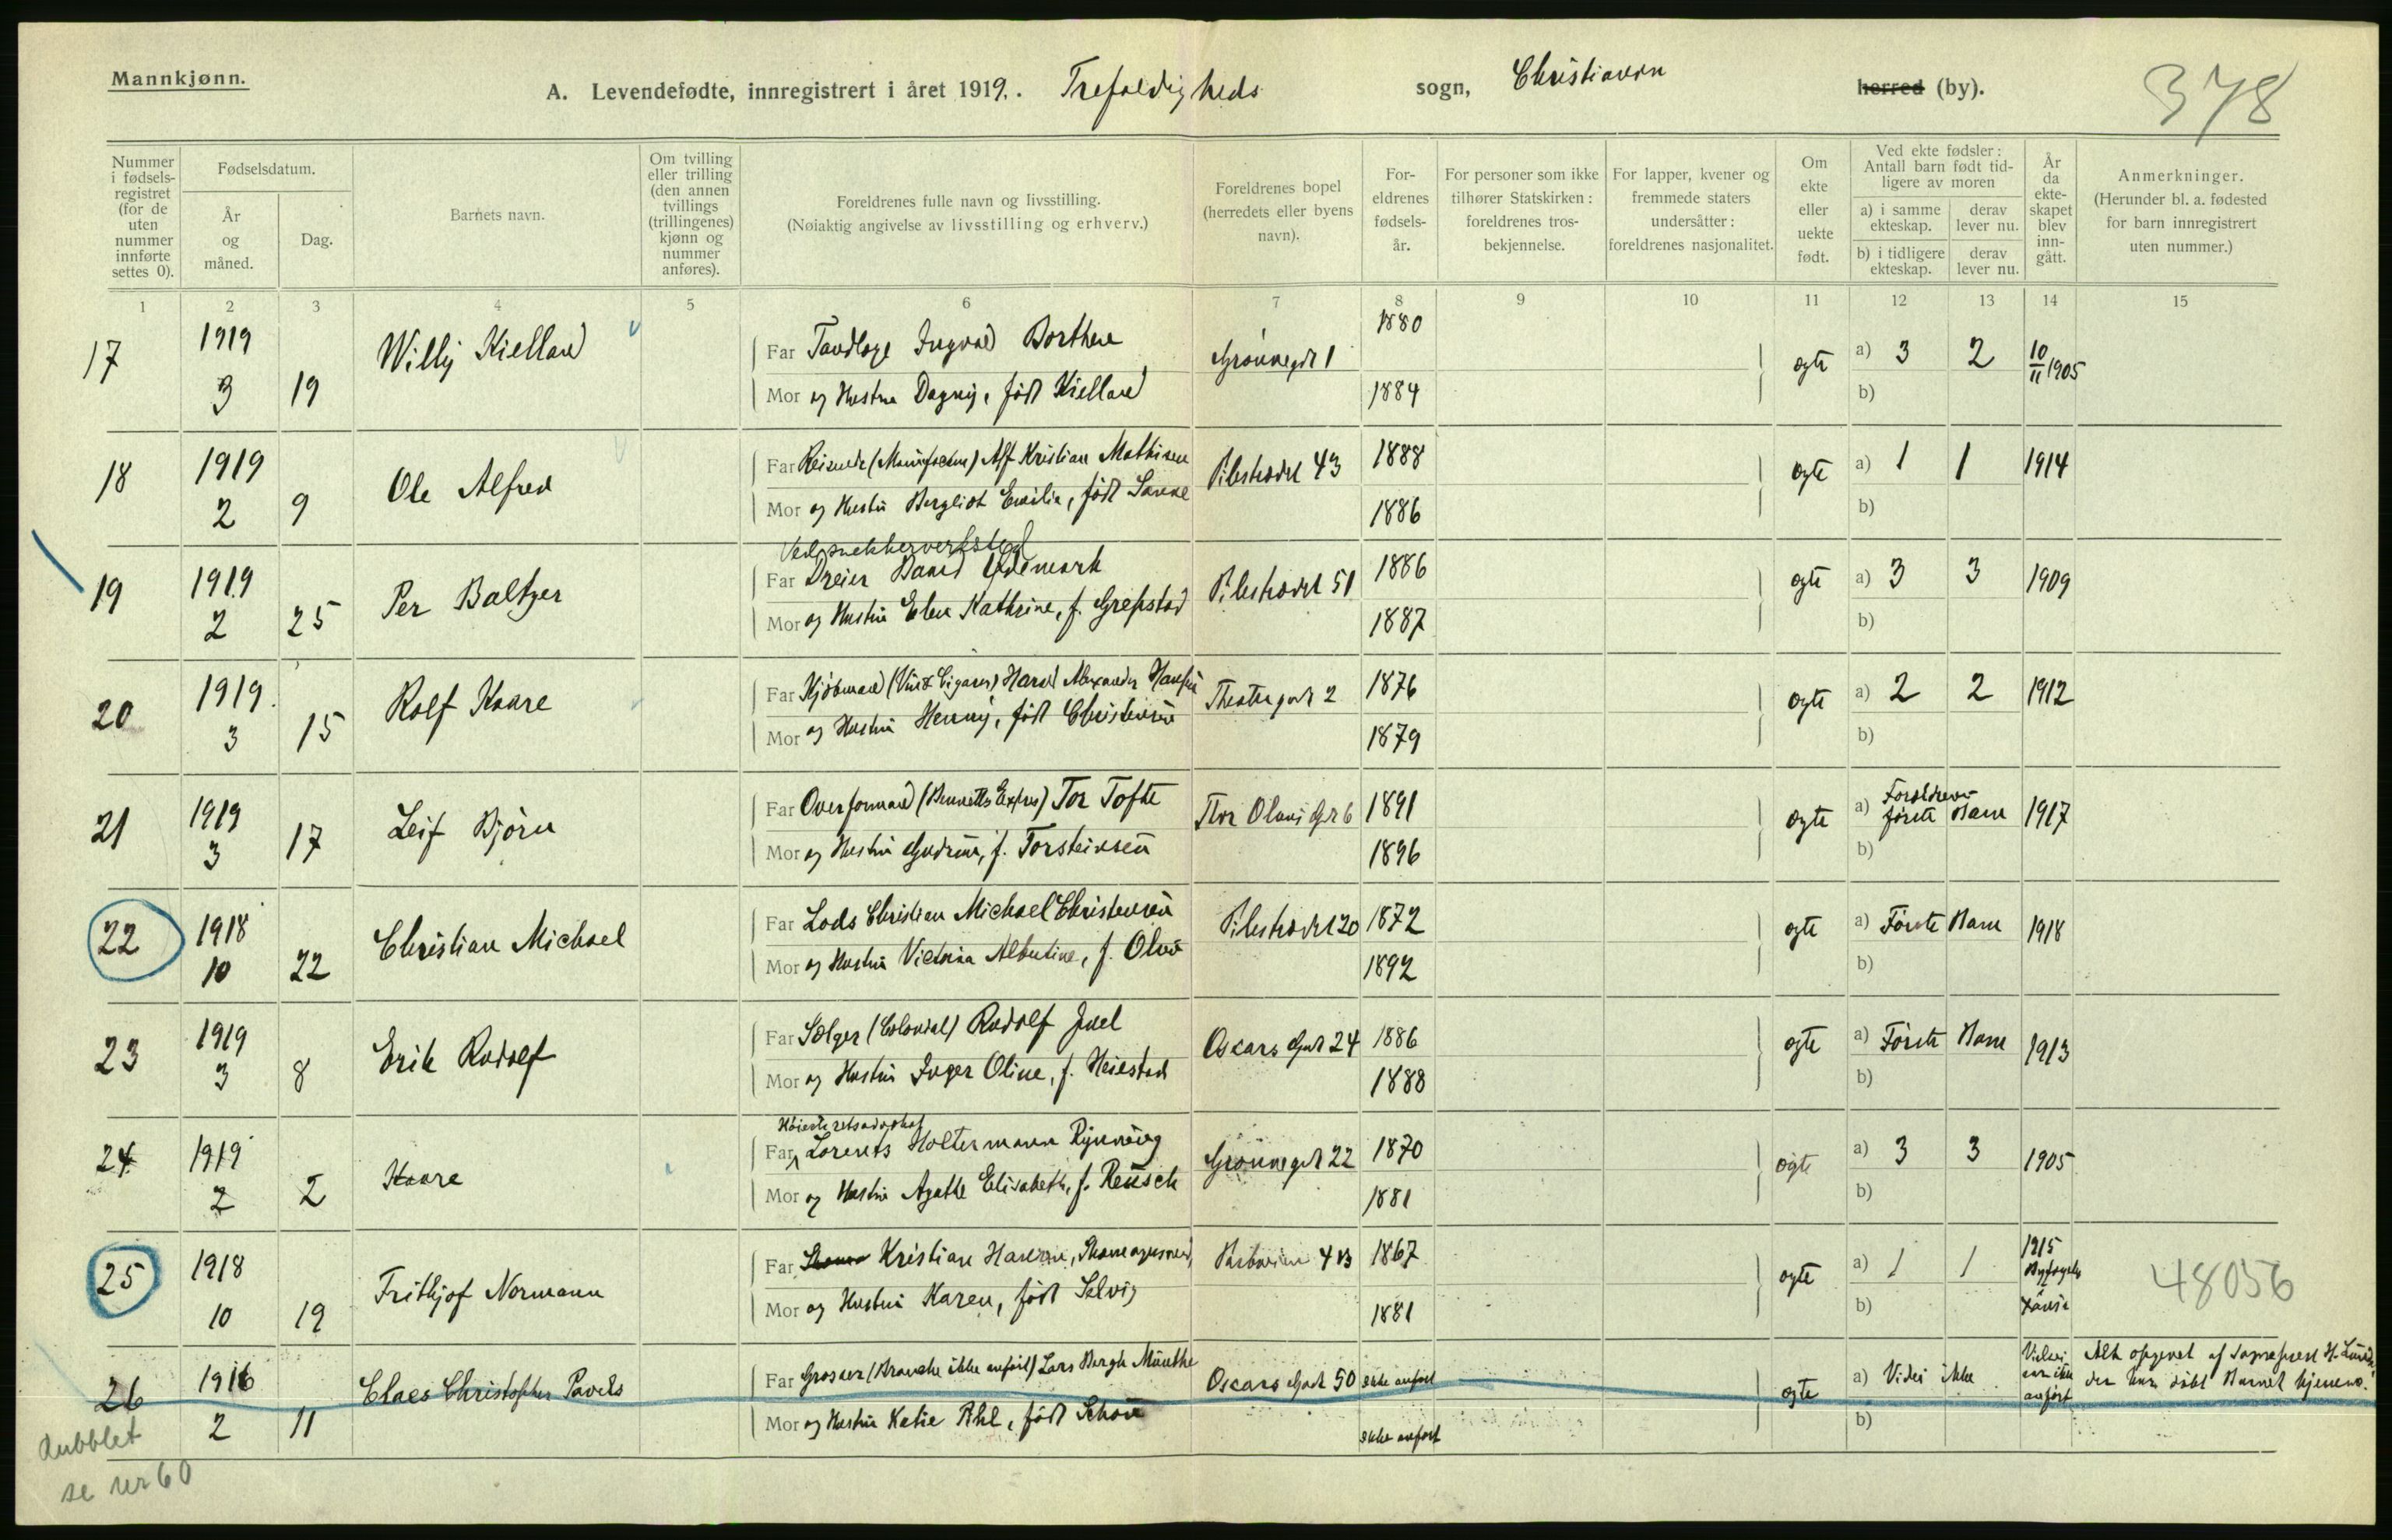 Mannkjønn.
A. Levendefødte, innregistrert i året 1919. Trefoldigheds sogn, Christiania herred (by).
378
Nummer i fødselsregistret (for de uten nummer innførte settes 0).
Fødselsdatum.
År og måned.
Dag.
Barnets navn.
Om tvilling eller trilling (den annen tvillings (trillingenes) kjønn og nummer anføres).
Foreldrenes fulle navn og livsstilling.
(Nøiaktig angivelse av livsstilling og erhverv.)
Foreldrenes bopel (herredets eller byens navn).
Foreldrenes fødselsår.
For personer som ikke tilhører Statskirken: foreldrenes trosbekjennelse.
For lapper, kvener og fremmede staters undersåtter: foreldrenes nasjonalitet.
Om ekte eller uekte født.
Ved ekte fødsler: Antall barn født tidligere av moren
a) i samme ekteskap.
derav lever nu.
b) i tidligere ekteskap.
derav lever nu.
År da ekteskapet blev inngått.
Anmerkninger.
(Herunder bl. a. fødested for barn innregistrert uten nummer.)
1 2 3 4 5 6 7 8 9 10 11 12 13 14 15
17 1919 3 19 Willy Kielland
Far Tandlæge Ingvald Borthen Grønnegt 1 1880
Mor og Hustru Dagny, født Kielland 1884
ægte a) 3 2 10/11 1905
b)
18 1919 2 9 Ole Alfred
Far Reisende (Manufactur) Alf Kristian Mathisen Pilestrædet 43 1888
Mor og Hustru Bergliot Emilie, født 1886
ægte a) 1 1 1914
b)
19 1919 2 25 Per Baltzer
Ved snekkerverksted
Far Dreier Baard Ødemark Pilestrædet 51 1886
Mor og Hustru Elen Kathrine, f. Grefstad 1887
ægte a) 3 3 1909
b)
20 1919 3 15 Rolf Kaare
Far Kjøbmand (Vin & Cigarer) Harald Alexander Hansen Theatergadt 2 1876
Mor og Hustru Henny, født Christensen 1879
ægte a) 2 2 1912
b)
21 1919 3 17 Leif Bjørn
Far Overformand (Bennetts Expres) Tor Tofte Thor Olsens Gt 6 1891
Mor og Hustru Gudrun, f. Torsteinsen 1896
ægte a) Forældrenes første Barn 1917
b)
22 1918 10 22 Christian Michael
Far Lods Christian Michael Christensen Pilestrædet 20 1872
Mor og Hustru Victoria Albertine, f. Olsen 1892
ægte a) Første Barn 1918
b)
23 1919 3 8 Erik Rudolf
Far Sælger (Colonial) Rudolf Juel Oscars Gadt 24 1886
Mor og Hustru Inger Oline, f. Heiestad 1888
ægte a) Første Barn 1913
b)
24 1919 2 2 Kaare
Høiesteretsadvokat
Far Lorents Holtermann Rynning Grønnegt 22 1870
Mor og Hustru Agathe Elisabeth, f. Reusch 1881
ægte a) 3 3 1905
b)
25 1918 10 19 Frithjof Normann
Far Kristian Hansen, 4 B 1867
Mor og Hustru Karen, født Selvig 1881
ægte a) 1 1 1915 48056
b)
26 1916 2 11 Claes Christopher Pavels
Far Grosser (Branche ikke anført) Lars Bergh Münthe Oscars Gadt 50 ikke anført
Mor og Hustru Katie født Schou ikke anført
ægte a) Vides ikke ikke anført
b)
Alt opgivet af Sogneprest H. der har døbt Barnet hjemme.
dubblet
se nr 60